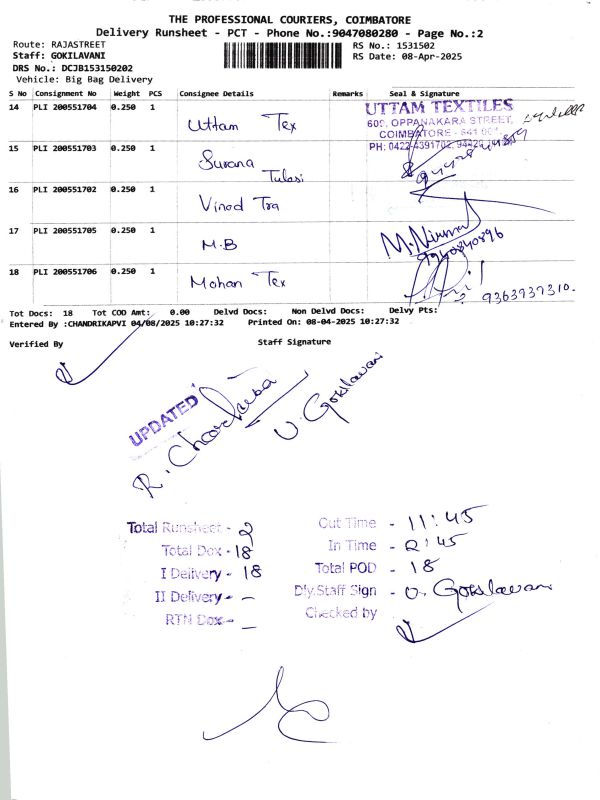 THE PROFESSIONAL COURIERS, COIMBATORE
Delivery Runsheet - PCT - Phone No.:9047080280 - Page No.:2
Route: RAJASTREET
RS No.: 1531502
Staff: GOKILAVANI
RS Date: 08-Apr-2025
DRS No.: DCJB153150202
Vehicle: Big Bag Delivery
S No Consignment No Weight PCS Consignee Details Remarks Seal & Signature
14 PLI 200551704 0.250 1 Uttam Tex
UTTAM TEXTILES
609, OPPANAKARA STREET,
COIMBATORE - 641 001.
PH: 0422-4391702,
15 PLI 200551703 0.250 1 Surana
Tulasi
16 PLI 200551702 0.250 1 Vinod Tra
17 PLI 200551705 0.250 1 M.B
M. Nirmal
9940840896
18 PLI 200551706 0.250 1 Mohan Tex
9363939310.
Tot Docs: 18 Tot COD Amt: 0.00 Delvd Docs: Non Delvd Docs: Delvy Pts:
Entered By :CHANDRIKAPVI 04/08/2025 10:27:32 Printed On: 08-04-2025 10:27:32
Verified By Staff Signature
UPDATED
U. Gokilavani
Total Runsheet - 2 Out Time - 11:45
Total Dox - 18 In Time - 2:45
I Delivery - 18 Total POD - 18
II Delivery - - Dly.Staff Sign - U. Gokilavani
RTN Dox - - Checked by